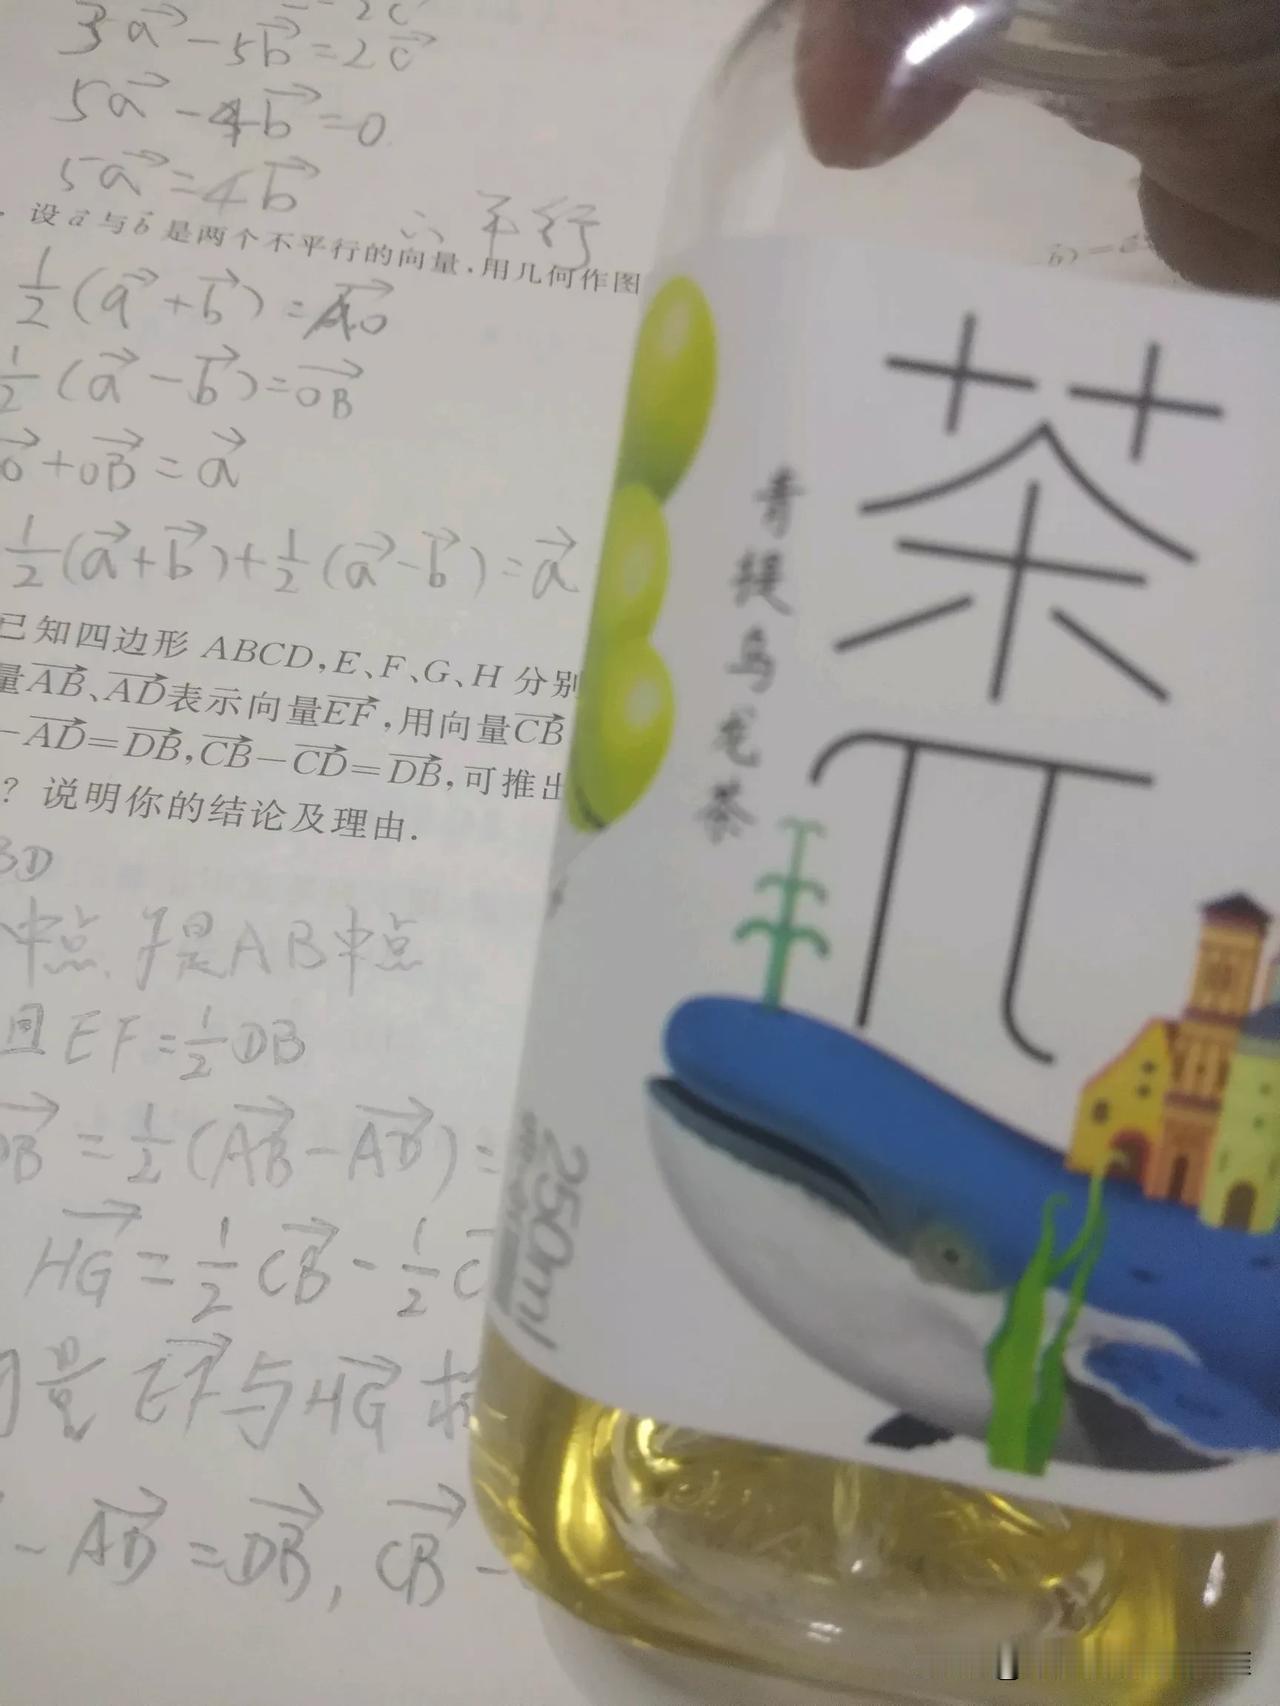 3a⃗-5b⃗=2c⃗
5a⃗-4b⃗=0
5a⃗=4b⃗
∴平行
设a⃗与b⃗是两个不平行的向量,用几何作图
1/2(a⃗+b⃗)=AO⃗
1/2(a⃗-b⃗)=OB⃗
O⃗+OB⃗=a⃗
1/2(a⃗+b⃗)+1/2(a⃗-b⃗)=a⃗
已知四边形 ABCD,E、F、G、H 分别
量AB⃗、AD⃗表示向量EF⃗,用向量CB⃗
-AD⃗=DB⃗,CB⃗-CD⃗=DB⃗,可推出
? 说明你的结论及理由.
BD
中点,F是AB中点
且EF=1/2DB
DB⃗=1/2(AB⃗-AD⃗)=
HG⃗=1/2CB⃗-1/2C
量EF⃗与HG⃗
-AD⃗=DB⃗,CB⃗-
茶π
青提乌龙茶
250ml